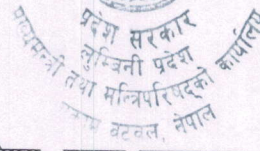 प्रदेश सरकार
लुम्बिनी प्रदेश
मुख्यमन्त्री तथा मन्त्रिपरिषद्को कार्यालय
बुटवल, नेपाल